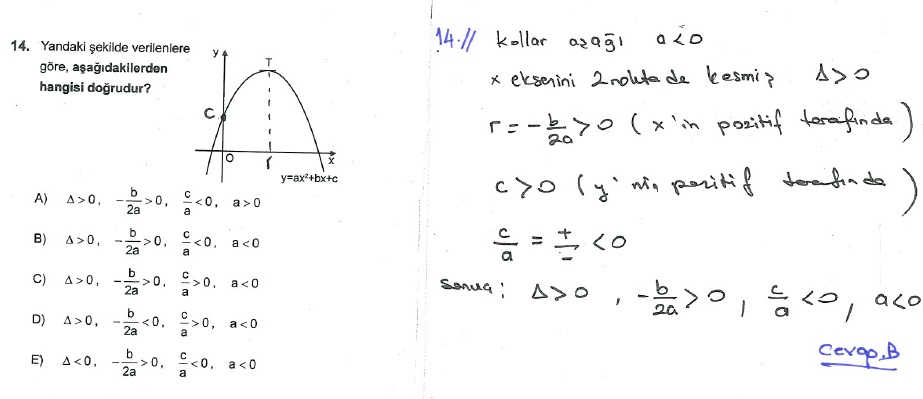 14. Yandaki şekilde verilenlere
göre, aşağıdakilerden
hangisi doğrudur?
y
T
C
O
r
x
y=ax²+bx+c
A) Δ>0, -b/2a>0, c/a<0, a>0
B) Δ>0, -b/2a>0, c/a<0, a<0
C) Δ>0, -b/2a>0, c/a>0, a<0
D) Δ>0, -b/2a<0, c/a>0, a<0
E) Δ<0, -b/2a>0, c/a<0, a<0
14.// kollar aşağı a<0
x eksenini 2 noktada kesmiş Δ>0
r=-b/2a>0 (x'in pozitif tarafında)
c>0 (y'nin pozitif tarafında)
c/a = +/- <0
sonuç: Δ>0, -b/2a>0, c/a<0, a<0
Cevap.B